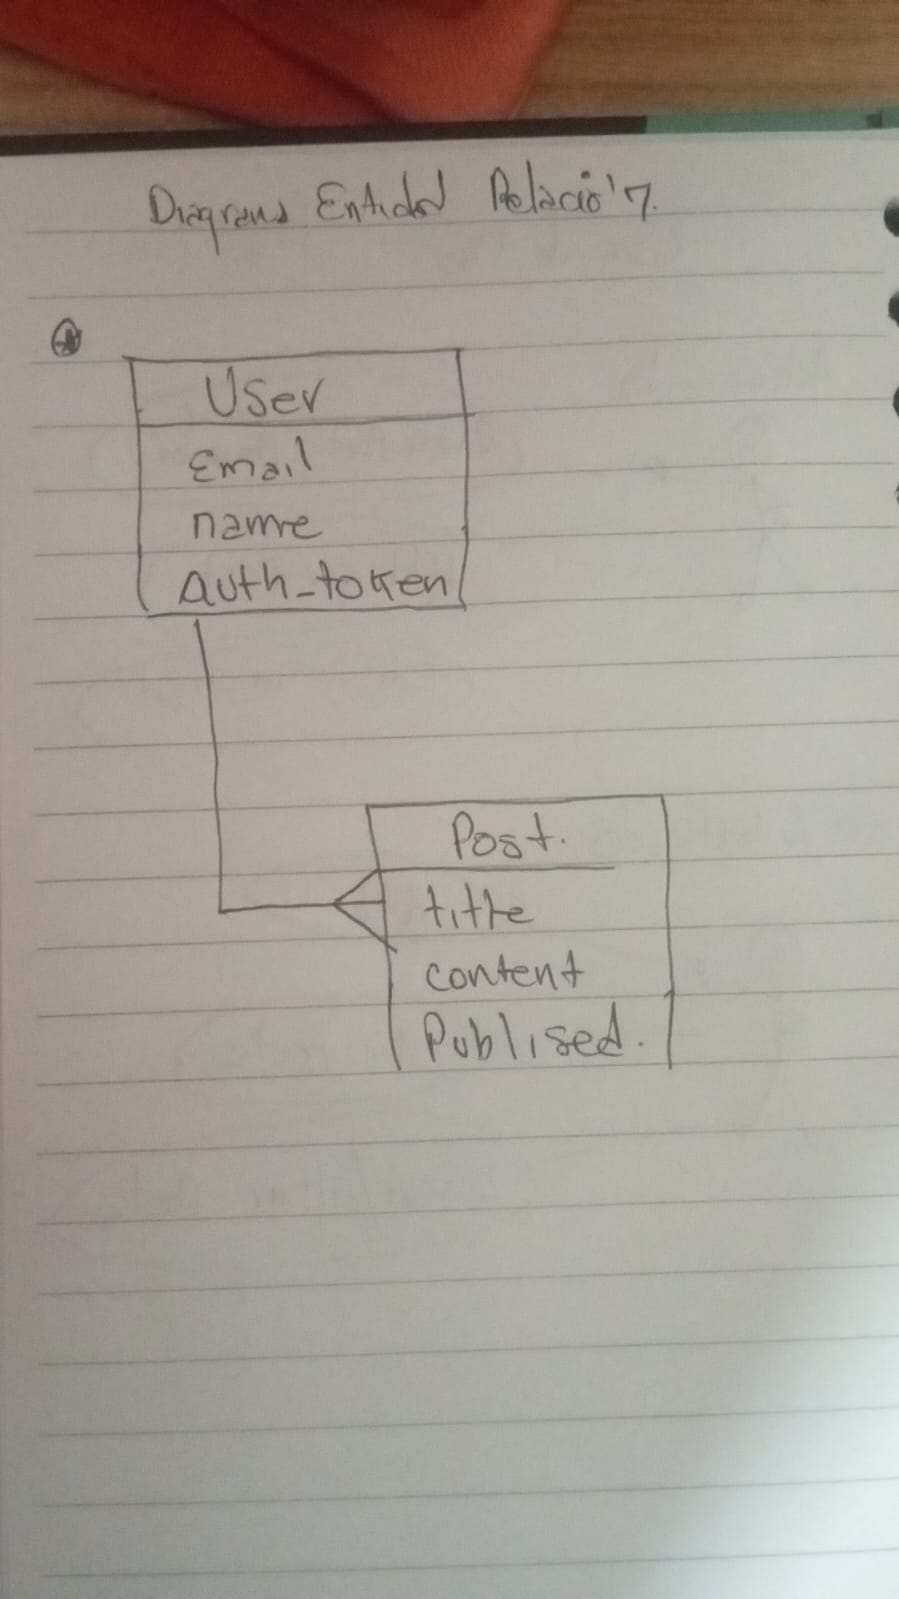 Diagrama Entidad Relació'n.
User
Email
name
auth_token
Post.
title
content
Publised.